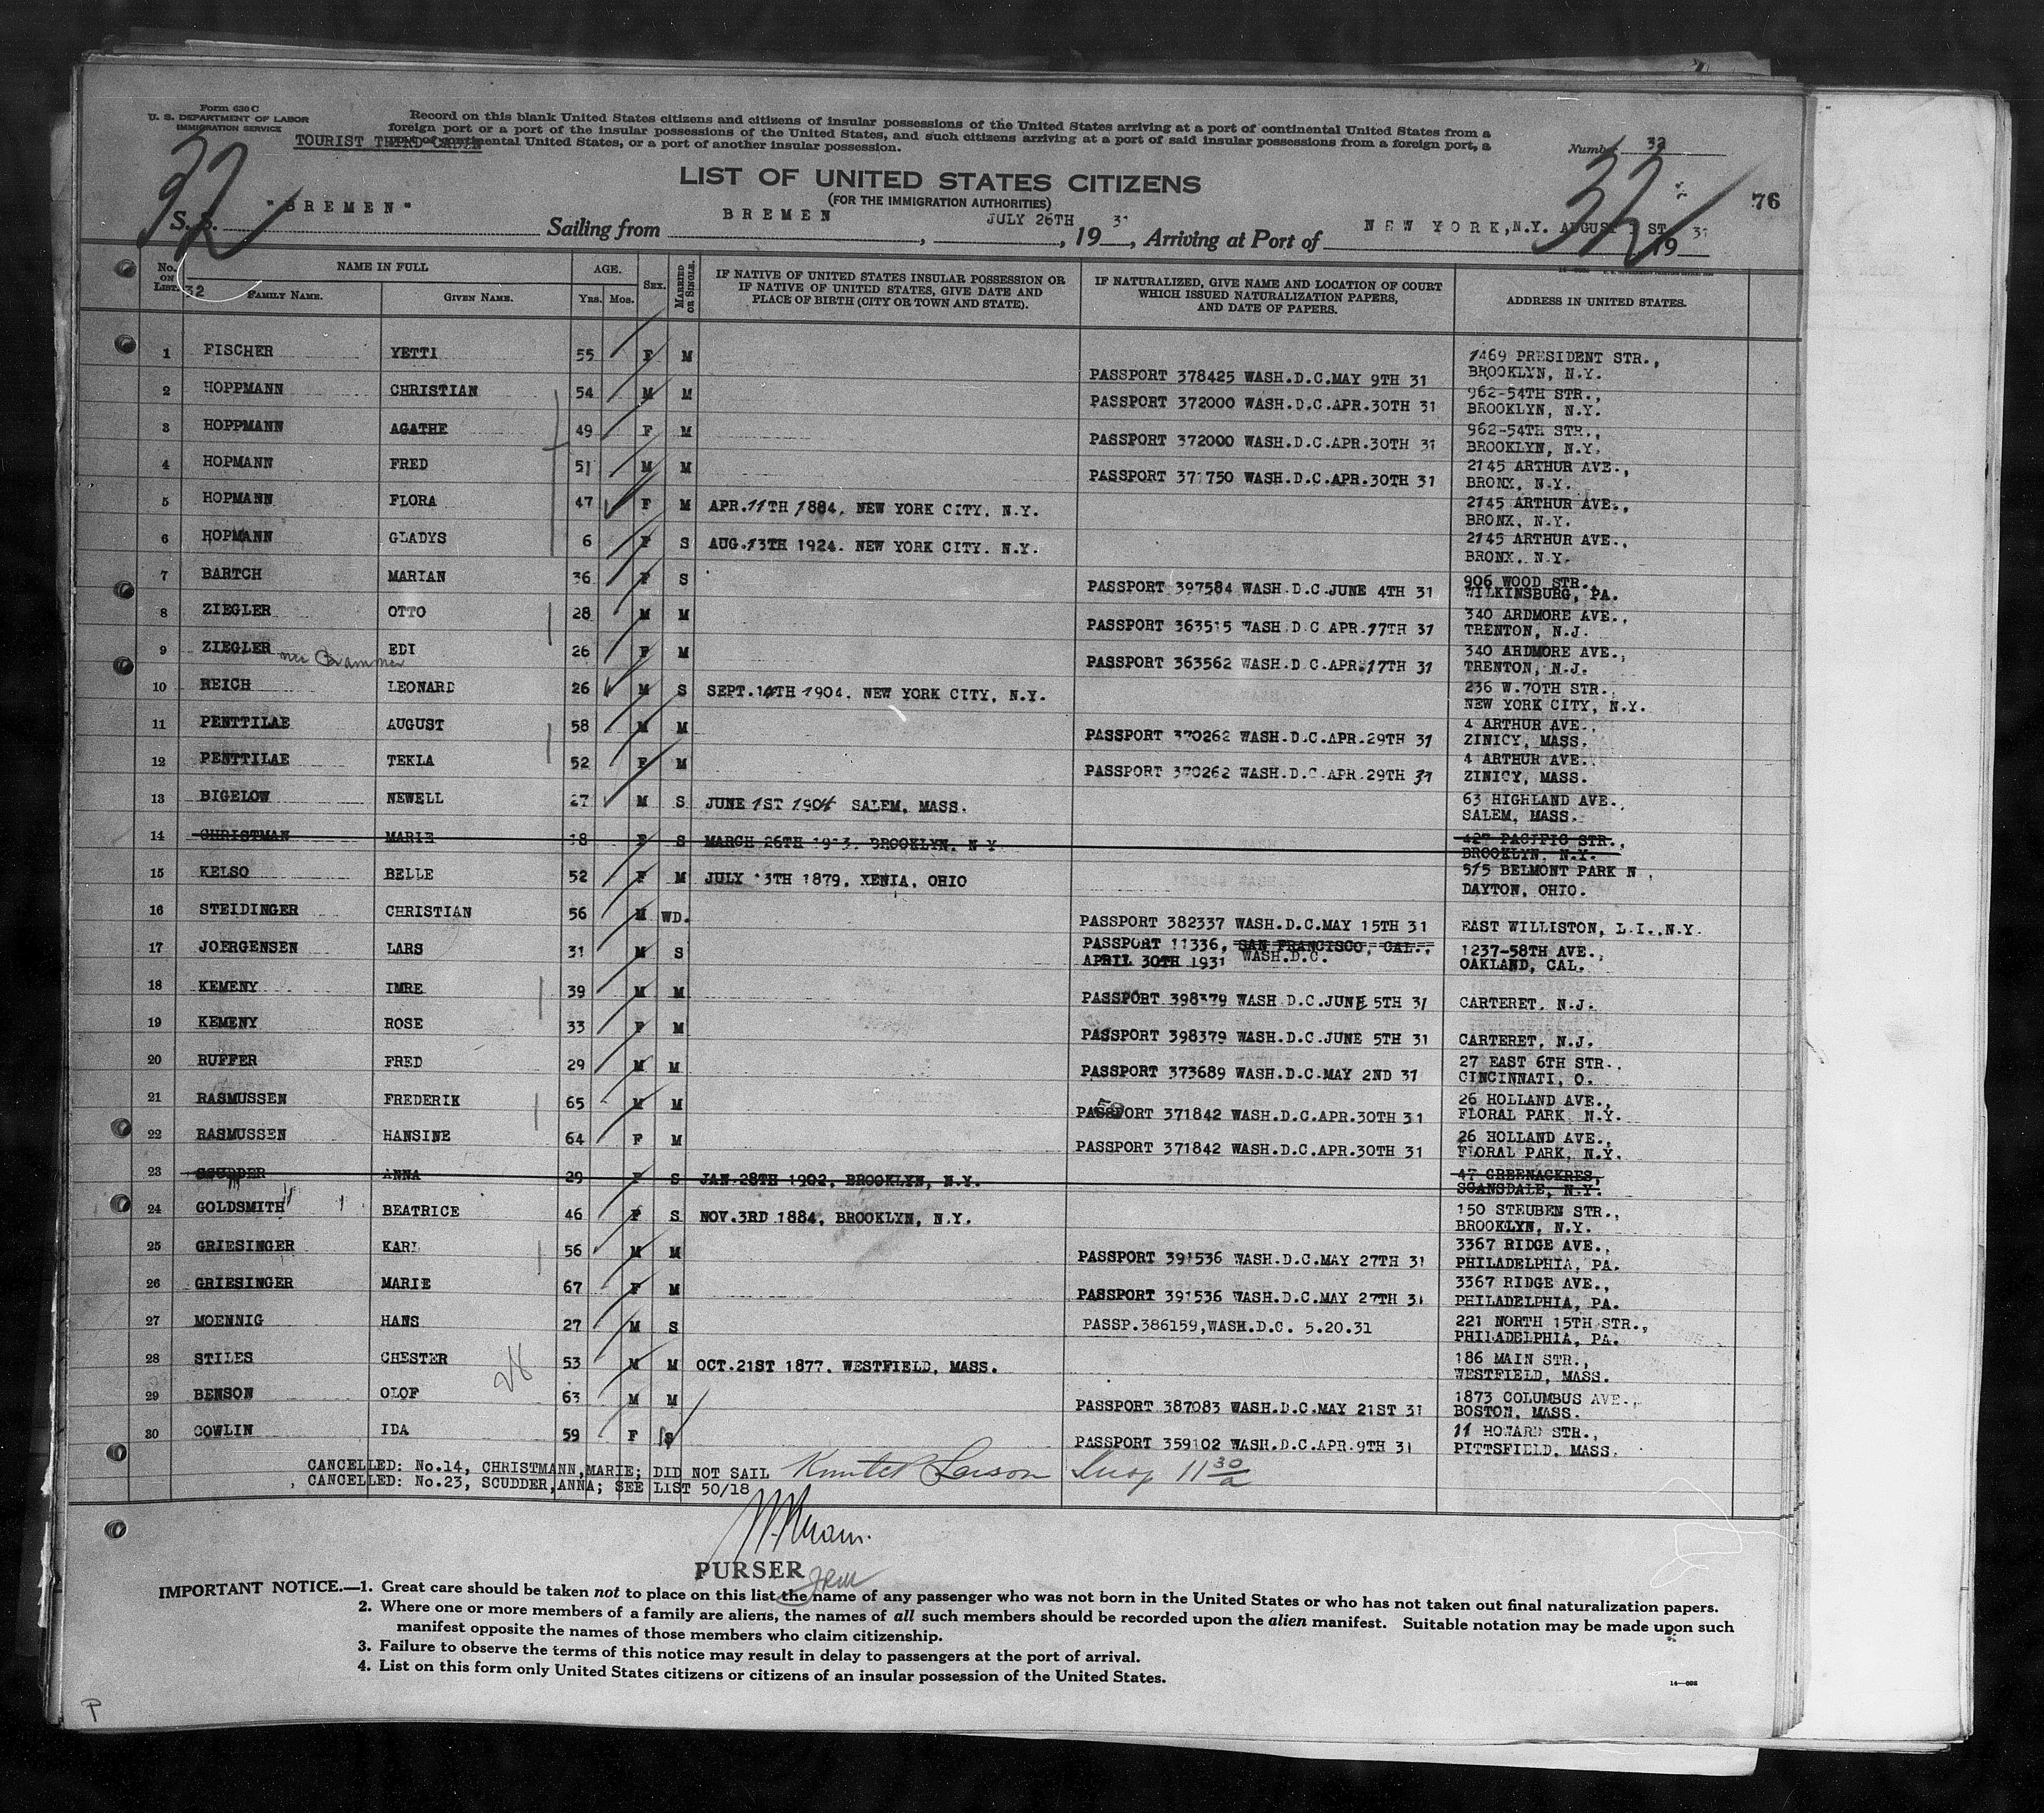 Form 630 C
U. S. DEPARTMENT OF LABOR
IMMIGRATION SERVICE
TOURIST THIRD CABIN
Record on this blank United States citizens and citizens of insular possessions of the United States arriving at a port of continental United States from a
foreign port or a port of the insular possessions of the United States, and such citizens arriving at a port of said insular possessions from a foreign port, a
port of continental United States, or a port of another insular possession.
Number 32
32
32
76
LIST OF UNITED STATES CITIZENS
(FOR THE IMMIGRATION AUTHORITIES)
S. S. "BREMEN" Sailing from BREMEN, JULY 26TH, 19 31, Arriving at Port of NEW YORK, N.Y. AUGUST 1ST 19 31
No. ON LIST. 32 NAME IN FULL FAMILY NAME. GIVEN NAME. AGE. Yrs. Mos. SEX. MARRIED OR SINGLE. IF NATIVE OF UNITED STATES INSULAR POSSESSION OR IF NATIVE OF UNITED STATES, GIVE DATE AND PLACE OF BIRTH (CITY OR TOWN AND STATE). IF NATURALIZED, GIVE NAME AND LOCATION OF COURT WHICH ISSUED NATURALIZATION PAPERS, AND DATE OF PAPERS. ADDRESS IN UNITED STATES.
1 FISCHER YETTI 55 F M PASSPORT 378425 WASH.D.C.MAY 9TH 31 1469 PRESIDENT STR., BROOKLYN, N.Y.
2 HOPPMANN CHRISTIAN 54 M M PASSPORT 372000 WASH.D.C.APR.30TH 31 962-54TH STR., BROOKLYN, N.Y.
3 HOPPMANN AGATHE 49 F M PASSPORT 372000 WASH.D.C.APR.30TH 31 962-54TH STR., BROOKLYN, N.Y.
4 HOPMANN FRED 51 M M PASSPORT 371750 WASH.D.C.APR.30TH 31 2145 ARTHUR AVE., BRONX, N.Y.
5 HOPMANN FLORA 47 F M APR.11TH 1884, NEW YORK CITY, N.Y. 2145 ARTHUR AVE., BRONX, N.Y.
6 HOPMANN GLADYS 6 F S AUG.13TH 1924. NEW YORK CITY. N.Y. 2145 ARTHUR AVE., BRONX, N.Y.
7 BARTCH MARIAN 36 F S PASSPORT 397584 WASH.D.C.JUNE 4TH 31 906 WOOD STR., WILKINSBURG, PA.
8 ZIEGLER OTTO 28 M M PASSPORT 363515 WASH.D.C.APR.17TH 31 340 ARDMORE AVE., TRENTON, N.J.
9 ZIEGLER nee EDI 26 F M PASSPORT 363562 WASH.D.C.APR.17TH 31 340 ARDMORE AVE., TRENTON, N.J.
10 REICH LEONARD 26 M S SEPT.14TH 1904, NEW YORK CITY, N.Y. 236 W.70TH STR., NEW YORK CITY, N.Y.
11 PENTTILAE AUGUST 58 M M PASSPORT 370262 WASH.D.C.APR.29TH 31 4 ARTHUR AVE., ZINICY, MASS.
12 PENTTILAE TEKLA 52 F M PASSPORT 370262 WASH.D.C.APR.29TH 31 4 ARTHUR AVE., ZINICY, MASS.
13 BIGELOW NEWELL 27 M S JUNE 1ST 1904 SALEM, MASS. 63 HIGHLAND AVE., SALEM, MASS.
14 CHRISTMAN MARIE 18 F S MARCH 26TH 1913. BROOKLYN, N Y 427 PACIFIC STR., BROOKLYN, N.Y.
15 KELSO BELLE 52 F M JULY 13TH 1879, XENIA, OHIO 515 BELMONT PARK N., DAYTON, OHIO.
16 STEIDINGER CHRISTIAN 56 M WD. PASSPORT 382337 WASH.D.C.MAY 15TH 31 EAST WILLISTON, L.I., N.Y.
17 JOERGENSEN LARS 31 M S PASSPORT 11336, SAN FRANCISCO, CAL., APRIL 30TH 1931 WASH.D.C. 1237-58TH AVE., OAKLAND, CAL.
18 KEMENY IMRE 39 M M PASSPORT 398379 WASH.D.C.JUNE 5TH 31 CARTERET, N.J.
19 KEMENY ROSE 33 F M PASSPORT 398379 WASH.D.C.JUNE 5TH 31 CARTERET, N.J.
20 RUFFER FRED 29 M M PASSPORT 373689 WASH.D.C.MAY 2ND 31 27 EAST 6TH STR., CINCINNATI, O.
21 RASMUSSEN FREDERIK 65 M M PASSPORT 371842 WASH.D.C.APR.30TH 31 26 HOLLAND AVE., FLORAL PARK, N.Y.
22 RASMUSSEN HANSINE 64 F M PASSPORT 371842 WASH.D.C.APR.30TH 31 26 HOLLAND AVE., FLORAL PARK, N.Y.
23 SCUDDER ANNA 29 F S JAN.28TH 1902, BROOKLYN, N.Y. 47 GREENACRES, SCANSDALE, N.Y.
24 GOLDSMITH BEATRICE 46 F S NOV.3RD 1884, BROOKLYN, N.Y. 150 STEUBEN STR., BROOKLYN, N.Y.
25 GRIESINGER KARL 56 M M PASSPORT 391536 WASH.D.C.MAY 27TH 31 3367 RIDGE AVE., PHILADELPHIA, PA.
26 GRIESINGER MARIE 67 F M PASSPORT 391536 WASH.D.C.MAY 27TH 31 3367 RIDGE AVE., PHILADELPHIA, PA.
27 MOENNIG HANS 27 M S PASSP.386159,WASH.D.C. 5.20.31 221 NORTH 15TH STR., PHILADELPHIA, PA.
28 STILES CHESTER 53 M M OCT.21ST 1877, WESTFIELD, MASS. 186 MAIN STR., WESTFIELD, MASS.
28
29 BENSON OLOF 63 M M PASSPORT 387083 WASH.D.C.MAY 21ST 31 1873 COLUMBUS AVE., BOSTON, MASS.
30 COWLIN IDA 59 F S PASSPORT 359102 WASH.D.C.APR.9TH 31 11 HOWARD STR., PITTSFIELD, MASS.
CANCELLED: No.14, CHRISTMANN,MARIE; DID NOT SAIL Larson Insp 11 30/a
CANCELLED: No.23, SCUDDER,ANNA; SEE LIST 50/18
PURSER
IMPORTANT NOTICE.—1. Great care should be taken not to place on this list the name of any passenger who was not born in the United States or who has not taken out final naturalization papers.
2. Where one or more members of a family are aliens, the names of all such members should be recorded upon the alien manifest. Suitable notation may be made upon such
manifest opposite the names of those members who claim citizenship.
3. Failure to observe the terms of this notice may result in delay to passengers at the port of arrival.
4. List on this form only United States citizens or citizens of an insular possession of the United States.
P